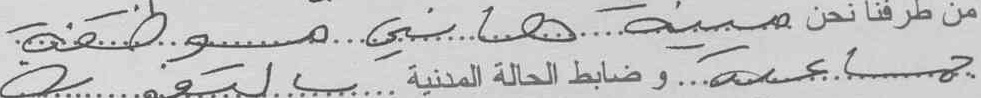 من طرفنا نحن صبيحة هاني موظفة
جماعية و ضابط الحالة المدنية بالتفويض